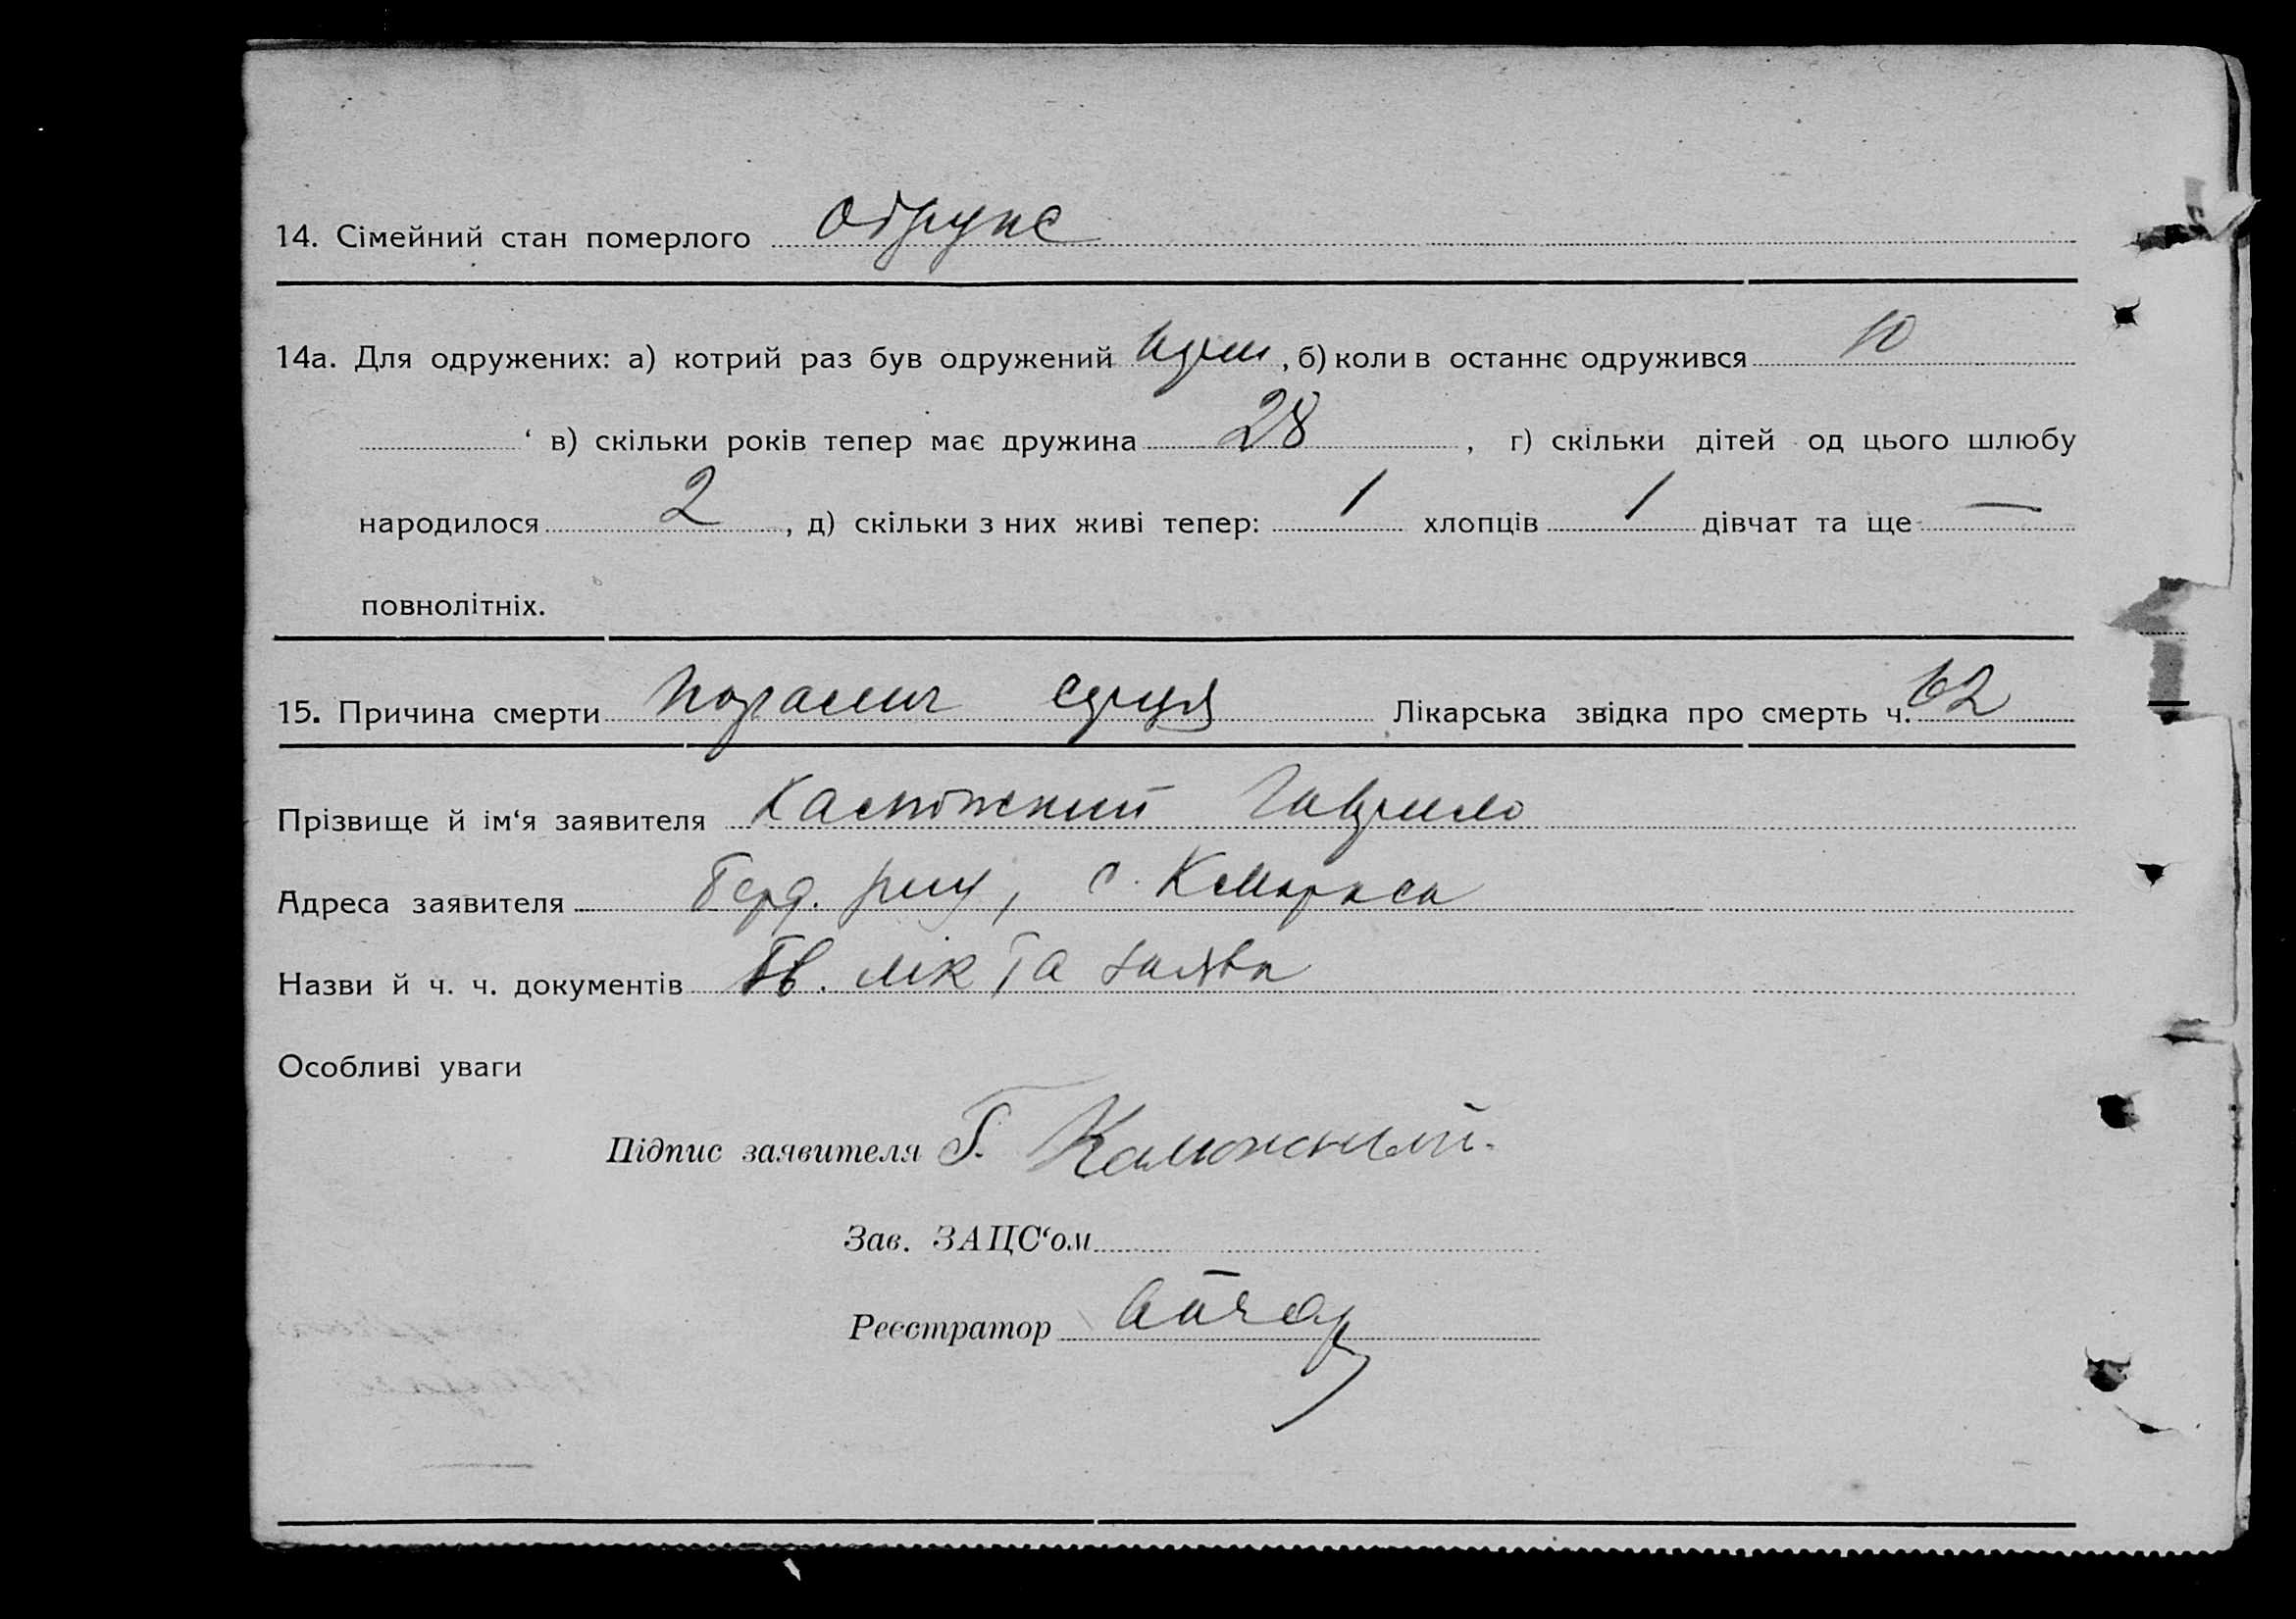 14. Сімейний стан померлого одруже
14а. Для одружених: а) котрий раз був одружений , б) коли в останнє одружився 10
‘ в) скільки років тепер має дружина 28 , г) скільки дітей од цього шлюбу
народилося 2 , д) скільки з них живі тепер: 1 хлопців 1 дівчат та ще —
повнолітніх.
15. Причина смерти параліч серця Лікарська звідка про смерть ч. 62
Прізвище й ім‘я заявителя Гаврило
Адреса заявителя Берд. рну, с. К Маркса
Назви й ч. ч. документів лік та заява
Особливі уваги
Підпис заявителя Г. Калюжный.
Зав. ЗАЦС‘ом
Реєстратор